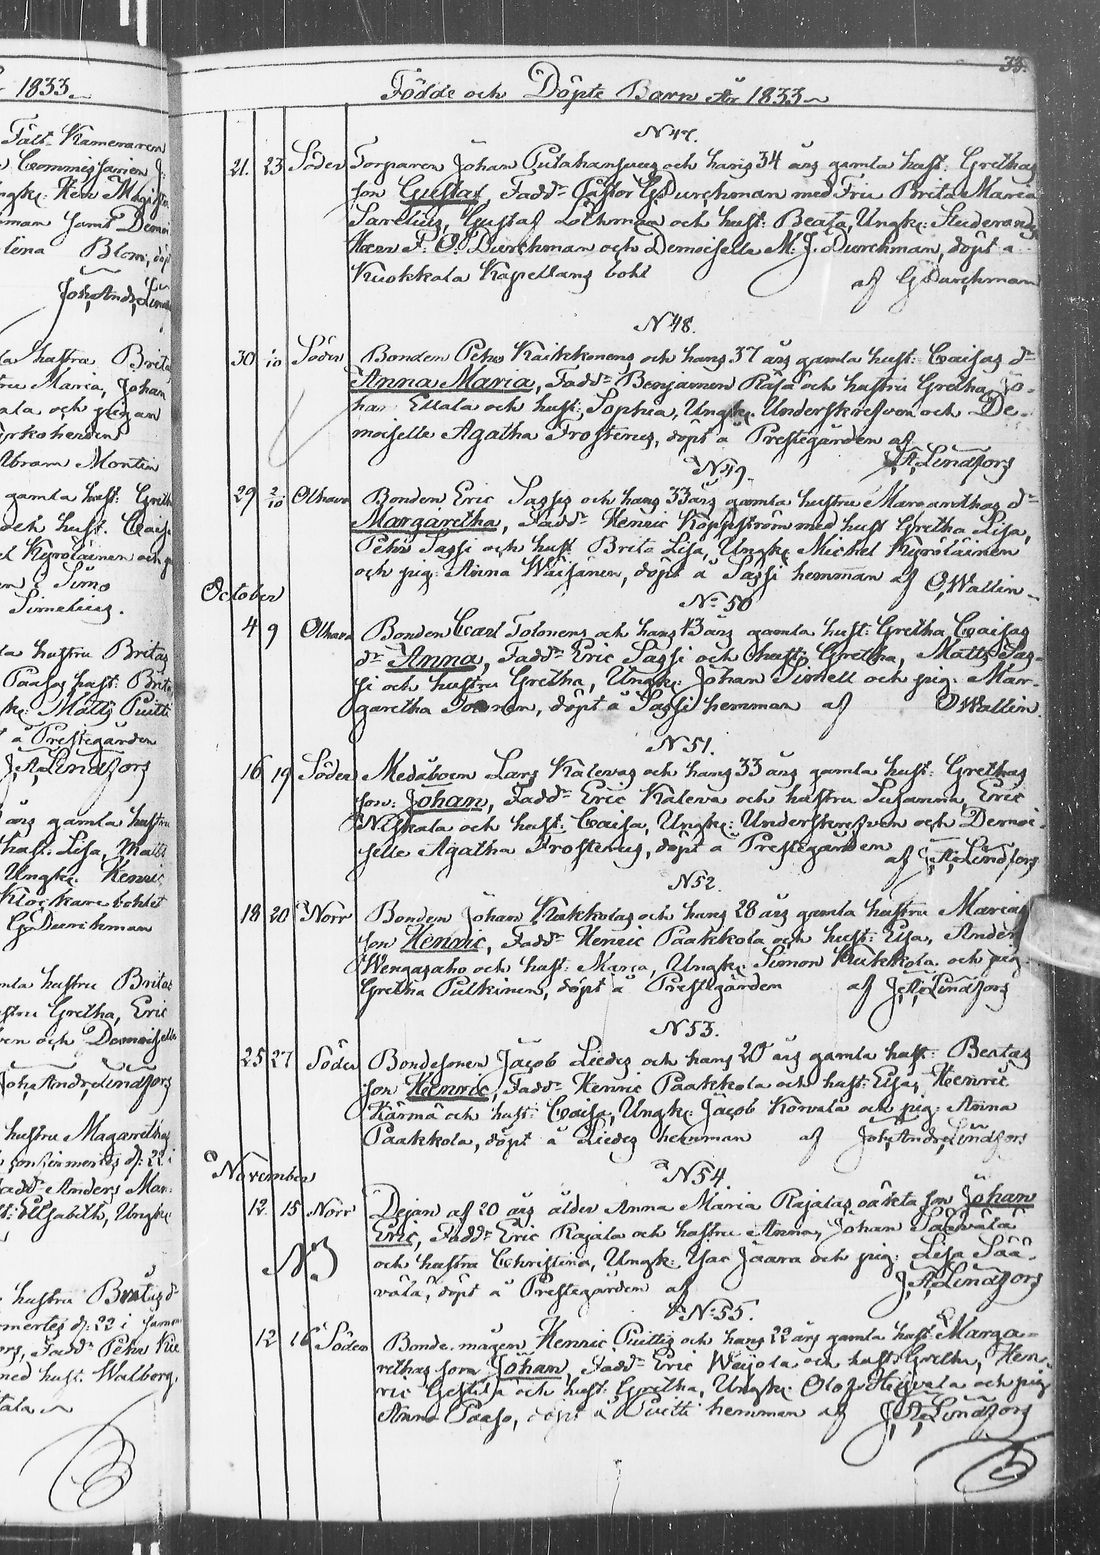 1833
Fält Kameraren
Commissarien J.
Blom, döpt
Joh, Andr, Lind
hustru Brita
Maria, Johan
och pigan
Kyrkoherden
Abram Montin
gamla hust: Greth
hust. Caisa
Kyröläinen och p
Simo
Simelius.
hustru Britas
Paaso hust: Brita
Matts Puitti
å Prestegården
J, A, Lindfors
års gamla hustru
hust. Lisa, Matts
Ungk. Henric
Klockare bohlet
G, Durchman
hustru Britas
hustru Gretha, Eric
och Demoiselle
Joh, Andr, Lindfors
hustru Magaretha
d: 22 i
Fadd: Anders Mar-
Elisabeth, Ungk:
hustru Britas d:
d: 22 i
Fadd: Pehr
med hust. Walborg
33.
Födde och Döpte Barn År 1833
N 47.
21. 23 Söder Torparen Johan Putahansuus och hans 34 års gamla hust: Grethas
son Gustaf, Fadd: Pastor G, Durchman med Fru Brita Maria
Sarelius, Gustaf Lothman och hust: Beata, Ungk: Studeranden
Herr F. O. Durchman och Demoiselle M. J. Durchman, döpt å
Kuokkala Kapellans bohl af G, Durchman
N 48.
30 1/10 Söder Bonden Pehr Kaikkonens och hans 37 års gamla hust: Caisas dr
Anna Maria, Fadd: Benjamin Räsä och hustru Gretha, Jo-
han Ellala och hust: Sophia, Ungk. Underskrefven och De-
moiselle Agatha Frosterus, döpt å Prestegården af
J, A, Lindfors
N 49.
29 2/10 Olhava Bonden Eric Sassis och hans 33 års gamla hustru Margarethas dr
Margaretha, Fadd: Henric Köppström med hust Gretha Lisa,
Pehr Sassi och hust Brita Lisa, Ungk: Michel Kyröläinen
och pig: Anna Wäisänen, döpt å Sassi hemman af O, Wallin
October
N: 50
4 9 Olhava Bonden Carl Tolonens och hans 43 års gamla hust: Gretha Caisas
dr Anna, Fadd: Eric Sassi och hust: Gretha, Matts Sas-
si och hustru Gretha, Ungk: Johan Simell och pig: Mar-
garetha Tolonen, döpt å Sassi hemman af O Wallin.
N 51.
16 19 Söder Medåboen Lars Kalevas och hans 33 års gamla hust: Grethas
son: Johan, Fadd: Eric Kaleva och hustru Susanna, Eric
Niskala och hust: Caisa, Ungk: Underskrefven och Demoi-
selle Agatha Frosterus, döpt å Prestegården af J, A, Lindfors
N 52.
18 20 Norr Bonden Johan Kakkolas och hans 28 års gamla hustru Marias
son Henric, Fadd: Henric Paakkola och hust: Elsa, Anders
Wengasaho och hust: Maria, Ungk: Simon Kukkola och pig:
Gretha Pulkinen, döpt å Prestegården af J, A, Lindfors
N 53.
25 27 Söder Bondesonen Jacob Liedes och hans 20 års gamla hust: Beatas
son Henric, Fadd: Henric Paakkola och hust: Elsa, Henric
Kärmä och hust: Caisa, Ungk: Jacob Korvala och pig: Anna
Paakkola, döpt å Liedes hemman af Joh, Andr, Lindfors
November
N 54.
12. 15 Norr Pigan af 20 års ålder Anna Maria Rajalas oäkta son Johan
Eric, Fadd: Eric Rajala och hustru Anna, Johan Säävälä
och hustru Christina, Ungk: Isac Jaara och pig: Lisa Sää-
välä, döpt å Prestegården af J, A, Lindfors
NB
N: 55.
12 16 Söder Bonde mågen Henric Puittis och hans 22 års gamla hust: Marga-
rethas son Johan, Fadd: Eric Weijola och hust: Gretha, Hen-
ric Gestilä och hust: Gretha, Ungk: Olof Heivala och pig
Anna Paaso, döpt å Puitti hemman af J, A, Lindfors